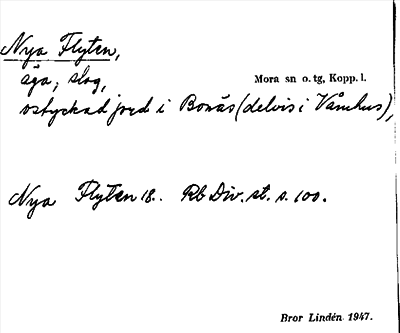 Nya Flyten,
äga, slog,
Mora sn o. tg, Kopp. l.
ostyckad jord i Bonäs (delvis i Våmhus),
Nya Flyten 18. Rb Div. st. s. 100.
Bror Lindén 1947.